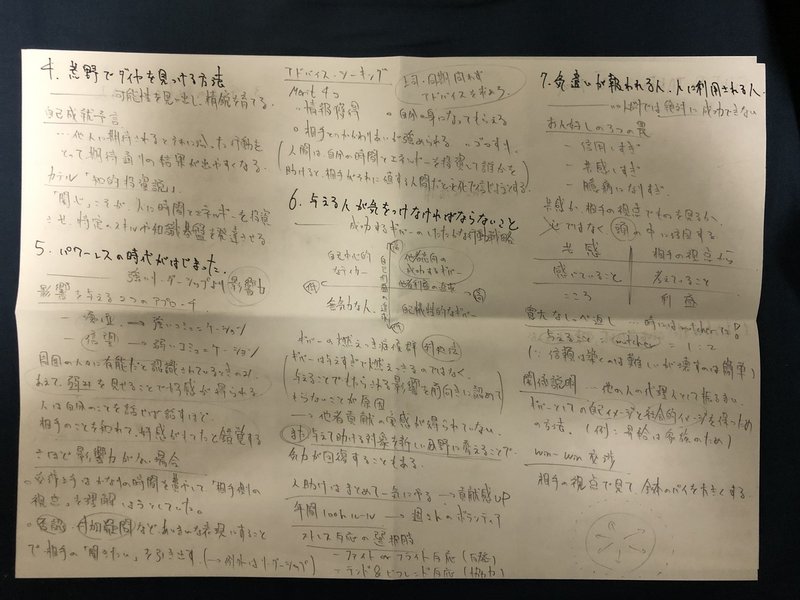 4. 荒野でダイヤを見つける方法
―― 可能性を思い出し、積極を育てる。
自己成就予言
… 他人に期待されるとそれに応じた行動を
とって期待通りの結果が出やすくなる。
カテル「知的投資説」
「関心」こそが、人に時間とエネルギーを投資
させ、特定のスキルや知識基盤を発達させる
5. パワーレスの時代がはじまった.
―― 強いリーダーシップより影響力
影響を与える2つのアプローチ
- 優位 → 強いコミュニケーション
- 信望 → 弱いコミュニケーション
周囲の人から有能だと認識されているときのみ、
あえて弱みを見せることで好感が得られる
人は自分のことを話せば話すほど、
相手のことをわかって、好感がもてたと錯覚する
さほど影響力がない場合
○ 交渉上手はかなりの時間を費やして「相手側の
視点」を理解しようとしていた。
○ 否認、付加疑問などあいまいな表現にすること
で、相手の「聞きたい」を引き出す (→ 例外はリーダーシップ)
アドバイス・シーキング
Merit 4つ
○ 情報獲得 ○ 自分の身になってもらえる
○ 相手とのかかわり合いが強められる ○ ごますり
上司・同期問わず
アドバイスを求めろ
(人間は、自分の時間とエネルギーを投資して誰かを
助けると、相手がそれに値する人間だと必死で信じようとする)
6. 与える人が気をつけなければならないこと
―― 成功するギバーの、したたかな行動戦略
自己中心的
なテイカー
他者志向の
成功するギバー
自己利益の追求
他者利益の追求
低
高
無気力な人
自己犠牲的なギバー
ギバーの燃えつき症候群 対処法
(ギバーは与えすぎで燃えつきるのではなく、
与えることでもたらされる影響を前向きに認めて
もらないことが原因
→ 他者貢献の実感が得られていない
また与えて助ける対象を新しい分野に変えることで、
気力が回復することもある。
人助けはまとめて一気にやる → 貢献感UP
年間100hルール → 週2hのボランティア
ストレス反応の選択肢
- ファイト or フライト反応 (反応)
- テンド&ビフレンド反応 (協力)
7. 気遣いが報われる人、人に利用される人.
―― "いい人"だけでは絶対に成功できない
お人好しの3つの罠
- 信用しすぎ
- 共感しすぎ
- 臆病になりすぎ.
共感か、相手の視点でものを見るか、
心ではなく、頭の中に注目する.
共感 相手の視点から
感じていること 考えていること
こころ 利益
寛大なしっぺ返し … 時にはmatcherに!
与えること : matcher = 1 : 2
(∵ 信頼は築くのは難しいが壊すのは簡単)
関係説明 … 他の人の代理人として振るまい、
ギバーとしての自己イメージと社会的イメージを保つため
の方法. (例: 昇給は家族のため)
win-win 交渉
相手の視点で見て、全体のパイを大きくする